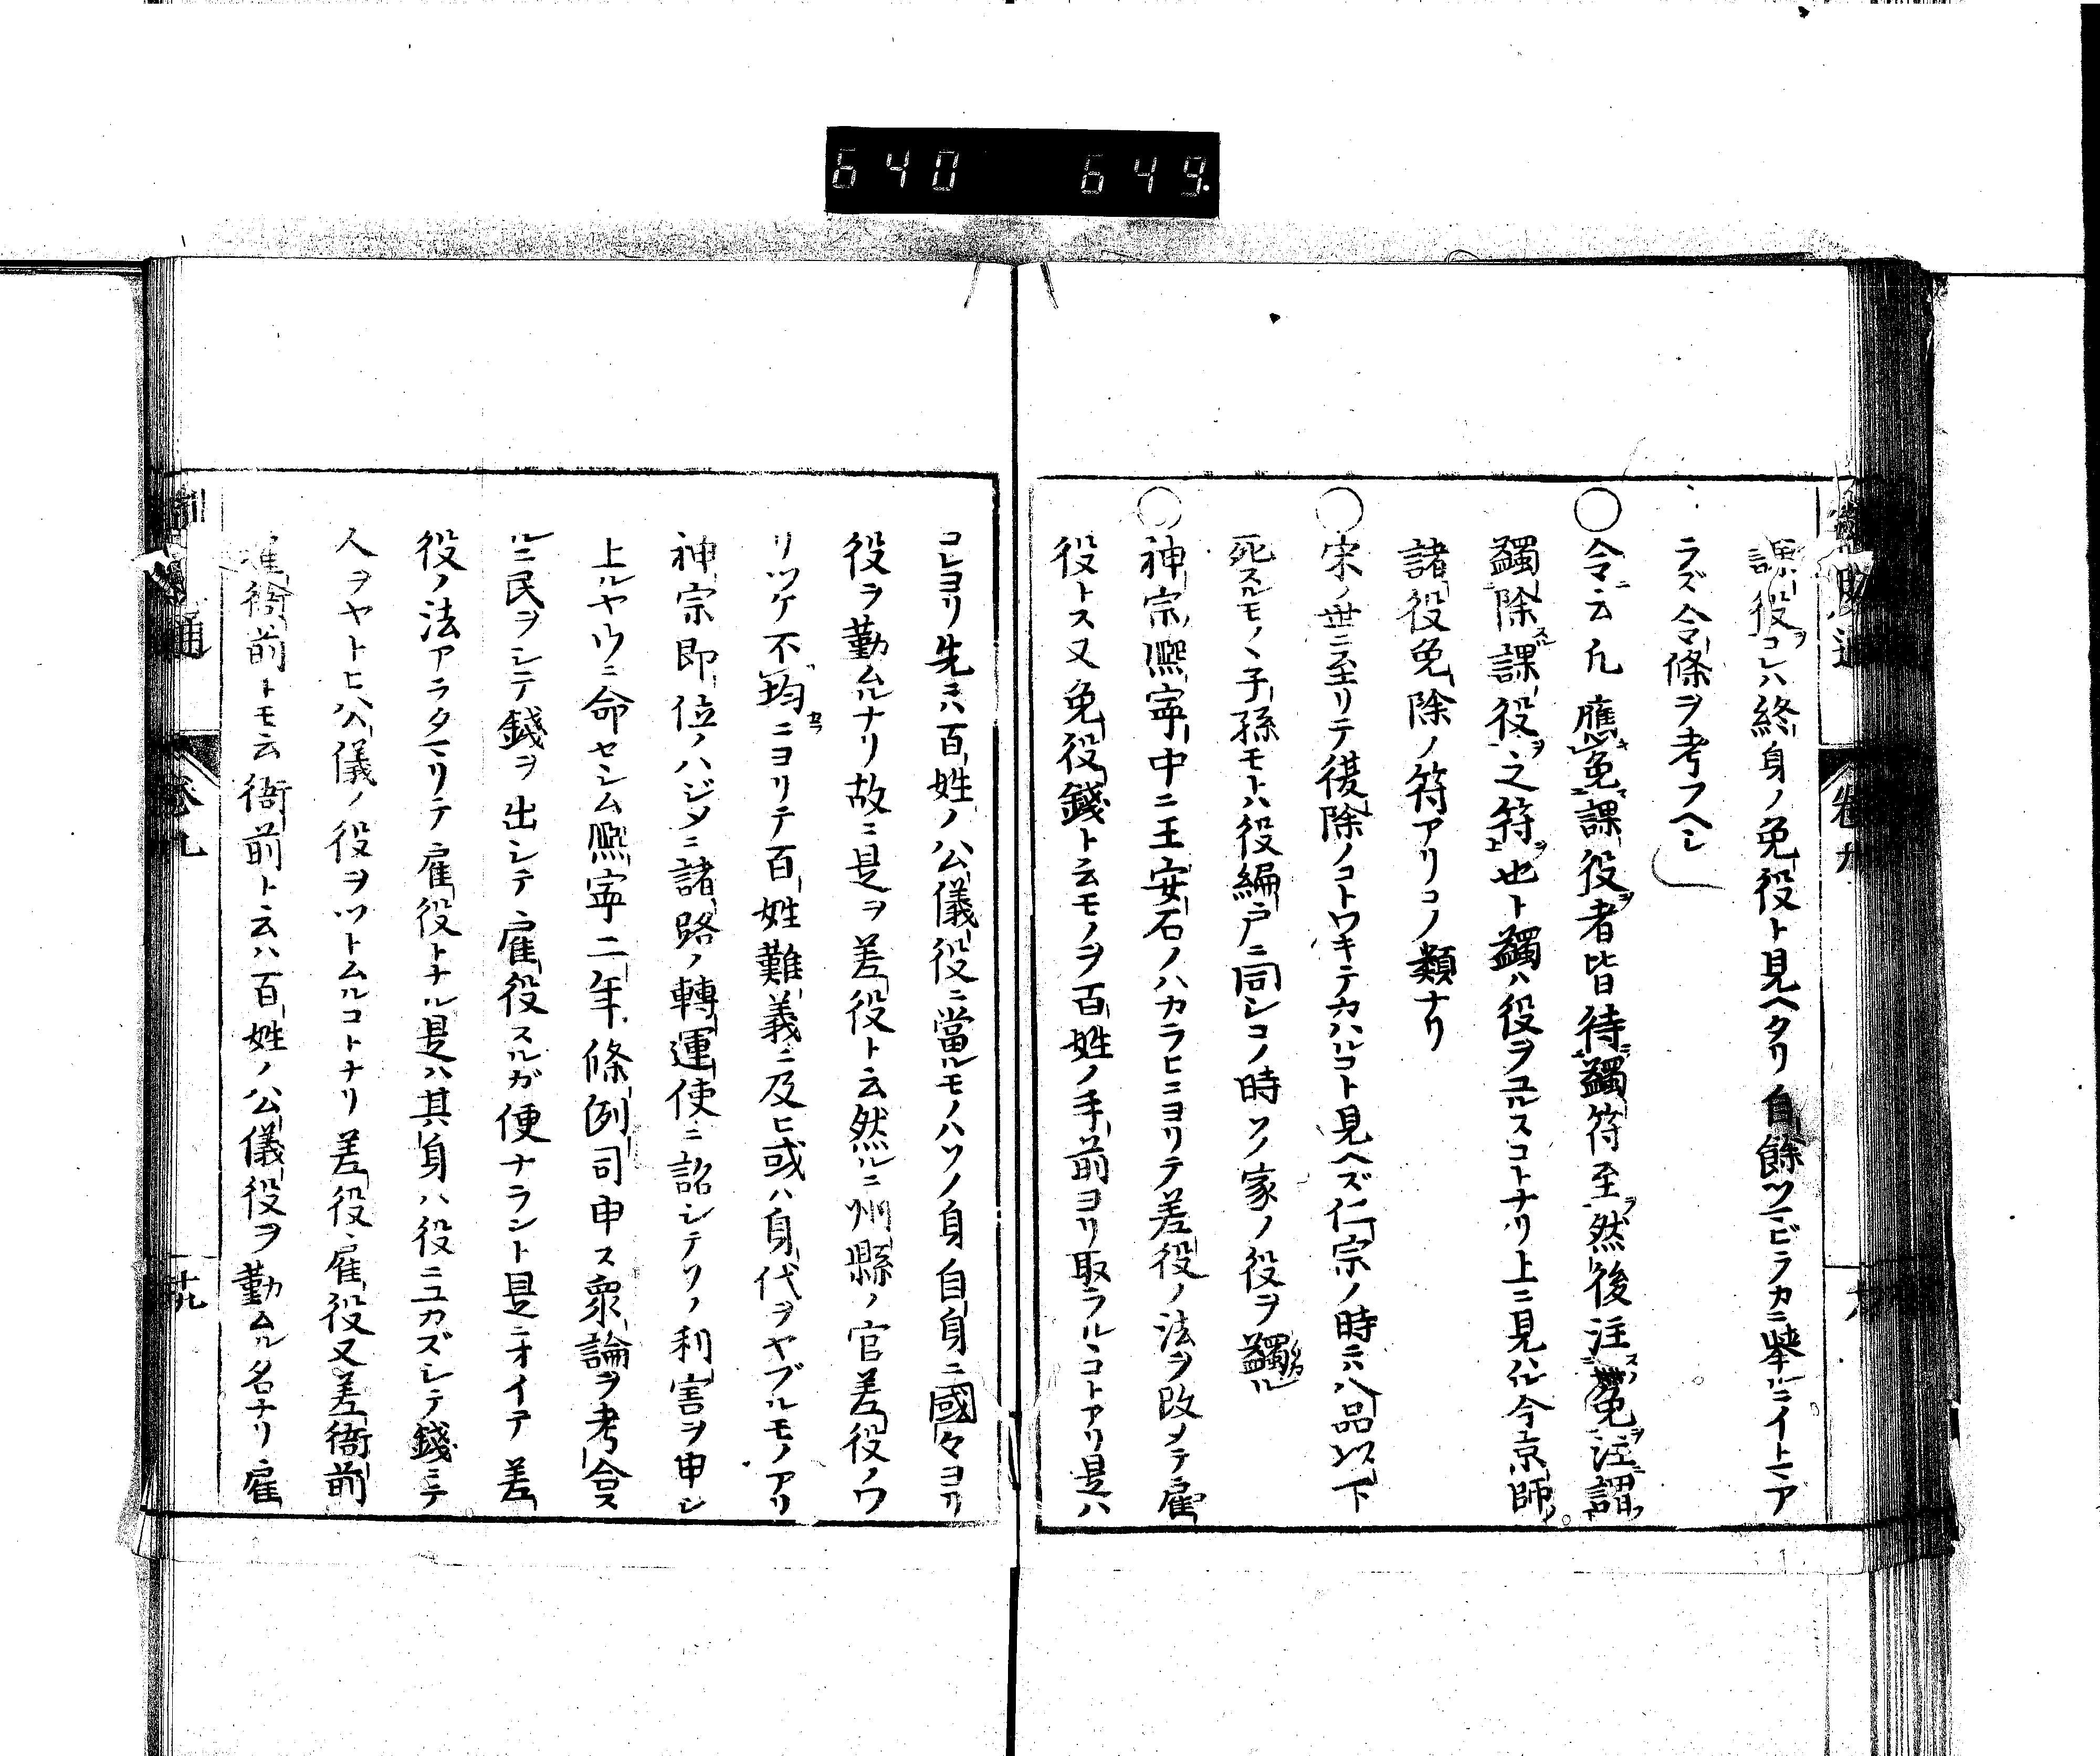 640 649.
課役ヲコレハ終身ノ免役ト見ヘタリ自餘ツマビラカニ挙ルニイトマア
ラズ令條ヲ考フヘシ
〇令ニ云凡應免課役ヲ者皆待蠲符至ヲ然後注免ヲ注謂
蠲除スル課役ヲ之符ヲ也ト蠲ハ役ヲユルスコトナリ上ニ見ハル今京師
諸役免除ノ符アリコノ類ナリ
〇宋ノ世ニ至リテ復除ノコトワキテカハルコト見ヘズ仁宗ノ時六八品以下
死スルモノヽ子孫モトハ役編戸ニ同シコノ時ソノ家ノ役ヲ蠲ル
〇神宗熈寧中ニ王安石ノハカラヒニヨリテ差役ノ法ヲ改メテ雇
役トス又免役錢ト云モノヲ百姓ノ手前ヨリ取ラルヽコトアリ是ハ
コレヨリ先キハ百姓ノ公儀役ニ當ルモノハソノ身自身ニ國々ヨリ
役ヲ勤ムルナリ故ニ是ヲ差役ト云然ルニ州縣ノ官差役ノワ
リツケ不均ニヨリテ百姓難義ニ及ヒ或ハ身代ヲヤブルモノアリ
神宗即位ノハジメニ諸路ノ轉運使ニ詔シテソノ利害ヲ申シ
上ルヤウニ命セシム熈寧二年條例司申ス衆論ヲ考合ス
ルニ民ヲシテ錢ヲ出シテ雇役スルガ便ナラント是ニオイテ差
役ノ法アラタマリテ雇役トナル是ハ其身ハ役ニユカズシテ錢ニテ
人ヲヤトヒ公儀ノ役ヲツトムルコトナリ差役雇役又差衙前
雇衙前トモ云衙前ト云ハ百姓ノ公儀役ヲ勤ムル名ナリ雇
通
卷九
十九